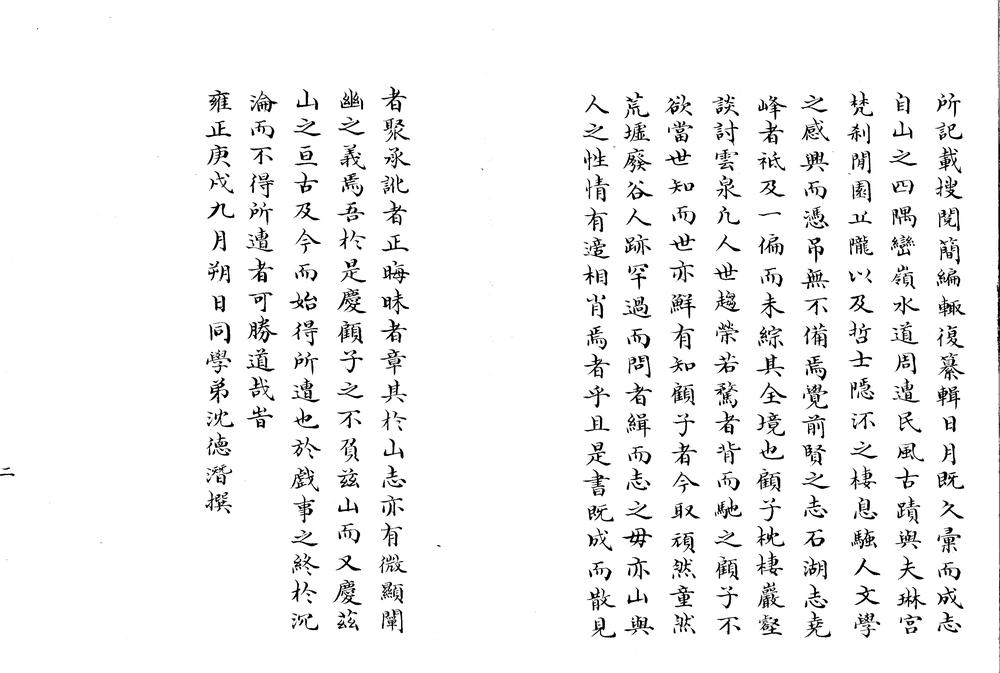 所記載搜閱簡編輙復纂輯日月既久彙而成志
自山之四隅巒嶺水道周遭民風古蹟與夫琳宮
梵刹閒園丘隴以及哲士隱流之棲息騷人文學
之感興而憑吊無不備焉覺前賢之志石湖志堯
峰者祇及一偏而未綜其全境也顧子枕棲巖壑
談討雲泉凢人世趨榮若騖者背而馳之顧子不
欲當世知而世亦鮮有知顧子者今取頑然童然
荒墟廢谷人跡罕過而問者緝而志之毋亦山與
人之性情有適相肖焉者乎且是書既成而散見
者聚承訛者正晦昧者章其於山志亦有微顯闡
幽之義焉吾於是慶顧子之不負兹山而又慶兹
山之亘古及今而始得所遭也於戲事之終於沉
淪而不得所遭者可勝道哉旹
雍正庚戌九月朔日同學弟沈德潛撰
二